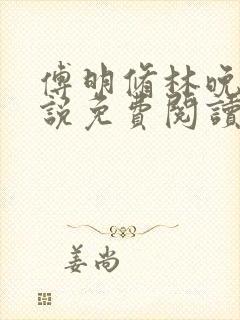 傅明脩林晚
説免費閱讀
姜尚